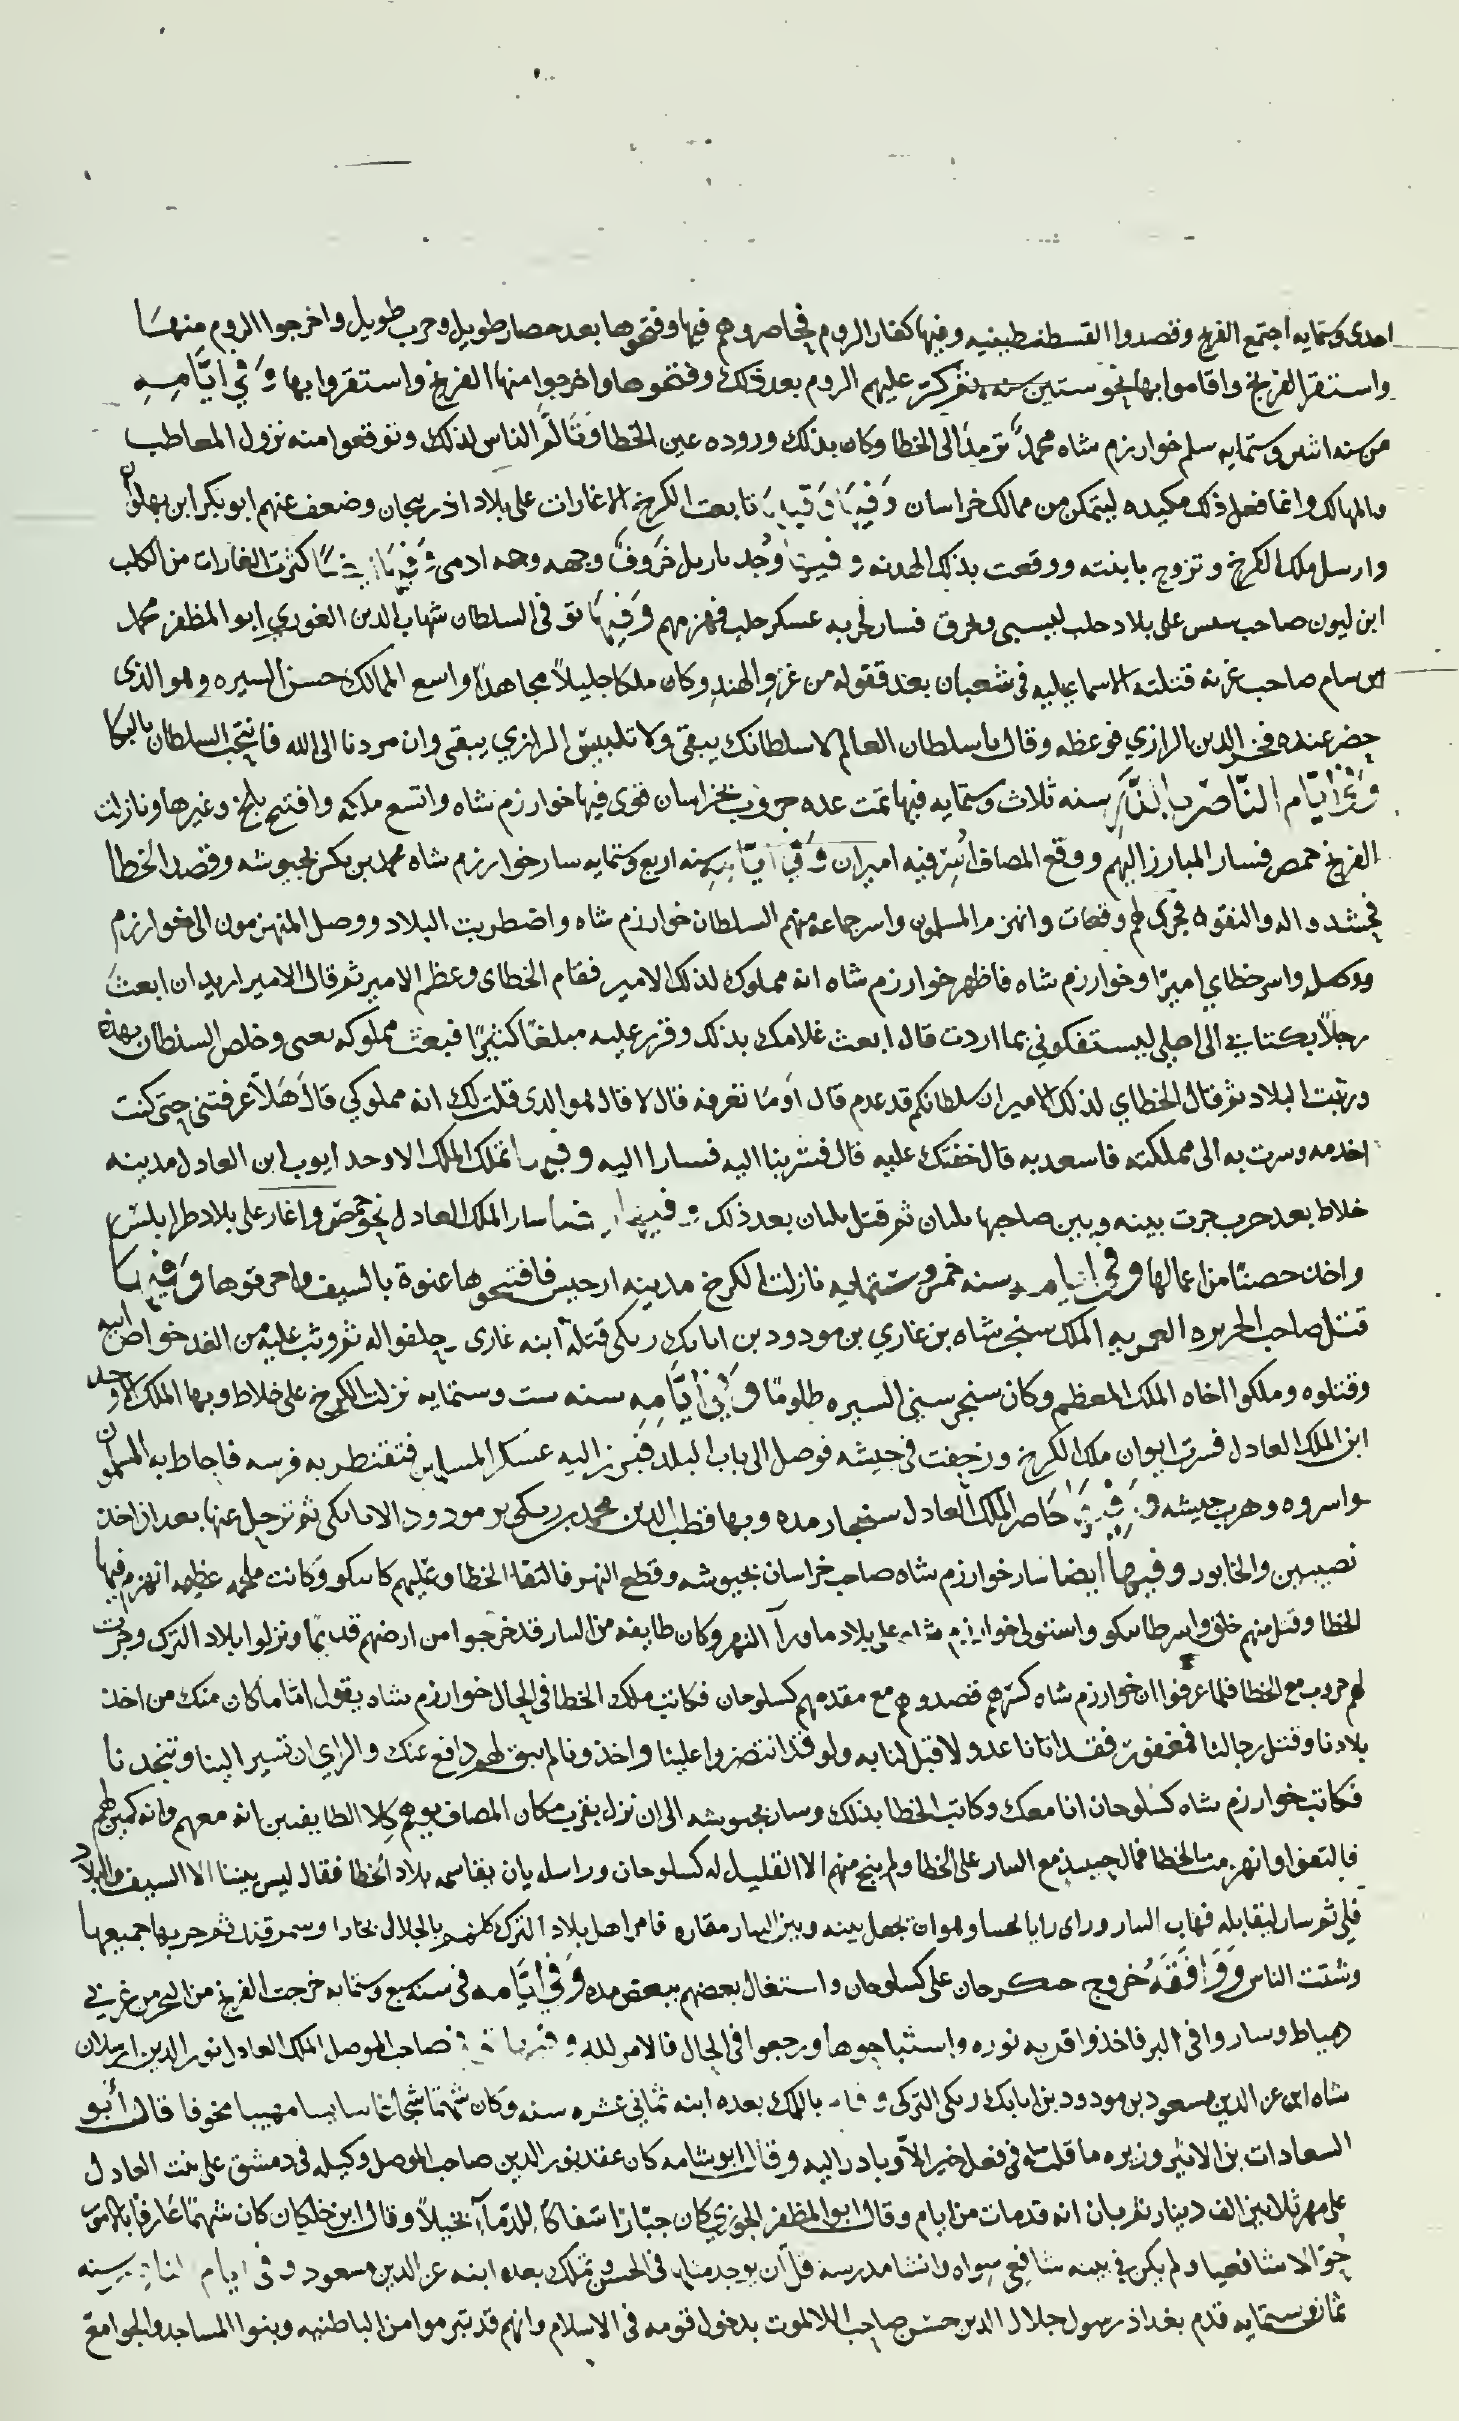 احدى وستمايه اجتمع الفرنج وقصدوا القسطنطينيه وفيها كفار الروم فحاصروهم فيها وفتحوها بعد حصار طويل وحرب طويل واخرجوا الروم منها
واستقر الفرنج واقاموا بها نحو ستين سنه ثم كرت عليهم الروم بعد ذلك وفتحوها واخرجوا منها الفرنج واستقروا بها وفي ايامه
من سنه اثنين وستمايه سلم خوارزم شاه محمد ترمذ الى الخطا وكان بذلك وروده عين الخطا وتالم الناس لذلك وتوقعوا منه نزول المعاطب
والمهالك وانما فعل ذلك مكيده ليتمكن من ممالك خراسان وفيها تابعت الكرخ الاغارات على بلاد اذربيجان وضعف عنهم ابو بكر ابن بهلوان
وارسل ملك الكرخ وتزوج بابنته ووقعت بذلك الهدنه وفيها وجد باربل خروف وجهه وجه ادمى وفيها ايضا كثرت الغارات من الكلب
ابن ليون صاحب سيس على بلاد حلب ليسبى ويحرق فسار لحربه عسكر حلب فهزمهم وفيها توفى السلطان شهاب الدين الغوري ابو المظفر محمد
ابن سام صاحب غزنه قتلته الاسماعيليه فى شعبان بعد قفوله من غزو الهند وكان ملكا جليلا مجاهدا واسع الممالك حسن السيره وهو الذى
حضر عنده فخر الدين الرازي فوعظه وقال يا سلطان العالم لا سلطانك يبقى ولا تلبيس الرازي يبقى وان مردنا الى الله فانتحب السلطان بالبكا
وفي ايام الناصر سنه ثلاث وستمايه فيها تمت عده حروب بخراسان قوى فيها خوارزم شاه واتسع ملكه وافتتح بلخ وغيرها ونازلت
الفرنج حمص فسار المبارز اليهم ووقع المصاف اسر فيه اميران وفي ايامه سنه اربع وستمايه سار خوارزم شاه محمد بن تكش بجيوشه وقصد الخطا
فحشدوا له والتقوه فجرى لهم وقعات وانهزم المسلمون واسر جماعه منهم السلطان خوارزم شاه واضطربت البلاد ووصل المنهزمون الى خوارزم
واسر خطاي اميرا وخوارزم شاه فاظهر خوارزم شاه انه مملوك لذلك الامير فقام الخطاى وعظم الامير ثم قال الامير اريد ان ابعث
رجلا بكتابي الى اهلي ليستفكوني بما اردت قال ابعث غلامك بذلك وقرر عليه مبلغا كثيرا فبعث مملوكه يعنى وخلص السلطان بهذه
ورتبت البلاد ثم قال الخطاي لذلك الامير ان سلطانكم قد عدم قال اوما تعرفه قال لا قال هو الذى قلت لك انه مملوكي قال هلا عرفتني حتى كنت
اخدمه وسرت به الى مملكته فاسعد به قال خفتك عليه قال فسر بنا اليه فسارا اليه وفيها تملك الملك الاوحد ايوب ابن العادل مدينه
خلاط بعد حرب جرت بينه وبين صاحبها بلبان ثم قتل بلبان بعد ذلك وفيها ايضا سار الملك العادل نحو حمص واغار على بلاد طرابلس
واخذ حصنا من اعمالها وفي ايامه سنه خمس وستمايه نازلت الكرخ مدينه ارجيس فافتتحوها عنوة بالسيف واحرقوها وفيها
قتل صاحب الجزيره العمريه الملك سنجر شاه بن غازي بن مودود بن اتابك زنكى قتله ابنه غازى وحلفوا له ثم وثب عليه من الغد خواص ابيه
وقتلوه وملكوا اخاه الملك المعظم وكان سنجر سيئ السيره ظلوما وفي ايامه سنه ست وستمايه نزلت الكرخ على خلاط وبها الملك الاوحد
ابن الملك العادل فسرت ايوان ملك الكرخ وزحفت فى جيشه فوصل الى باب البلد فبرز اليه عسكر المسلمين فتقنطر به فرسه فاحاط به المسلمون
واسروه وهرب جيشه وفيها حاصر الملك العادل سنجار مده وبها قطب الدين محمد بن زنكى بن مودود الاتابكى ثم ترحل عنها بعد ان اخذ
نصيبين والخابور وفيها ايضا سار خوارزم شاه صاحب خراسان بجيوشه وقطع النهر فالتقاه الخطا وعليهم كاينكو وكانت ملحمه عظيمه انهزم فيها
الخطا وقتل منهم خلق واسر طاينكو واستولى خوارزم شاه على بلاد ماورآ النهر وكان طايفه من التتار قد خرجوا من ارضهم قديما ونزلوا بلاد الترك وجرت
لهم حروب مع الخطا فلما عرفوا ان خوارزم شاه كسرهم قصدوهم مع مقدمهم كسلوخان فكاتب ملك الخطا فى الحال خوارزم شاه يقول اما ما كان منك من اخذ
بلادنا وقتل رجالنا فمعفو عنه فقد اتانا عدو لا قبل لنا به ولو قد انتصروا علينا واخذونا لم يبق لهم دافع عنك والراي ان تسير الينا وتنجدنا
فكاتب خوارزم شاه كسلوخان انا معك وكاتب الخطا بذلك وسار بجيوشه الى ان نزل بقرب مكان المصاف يوهم كلا الطايفتين انه معهم وانه كمين لهم
فالتقوا وانهزمت الخطا فمال حينيذ مع التتار على الخطا ولم ينج منهم الا القليل له كسلوخان وراسله بان يقاسمه بلاد الخطا فقال ليس بيننا الا السيف والبلاد
فلي ثم سار ليقابله فهاب التتار وراى رايا حسنا وهو ان يجعل بينه وبين التتار مفازه فامر اهل بلاد الترك كلهم بالجلا الى بخارا وسمرقند ثم خربها جميعها
وشتت الناس ووافقه خروج جنكزخان على كسلوخان واشتغال بعضهم ببعض مده وفي ايامه فى سنه سبع وستمايه خرجت الفرنج من البحر من غربي
دمياط وساروا فى البر فاخذوا قريه نوره واستباحوها ورجعوا فى الحال فالامر لله وفيها توفي صاحب الموصل الملك العادل نور الدين ارسلان
شاه ابن عز الدين مسعود بن مودود بن اتابك زنكى التركى وقام بالملك بعده ابنه ثماني عشره سنه وكان شهما شجاعا سايسا مهيبا مخوفا قال أبو
السعادات بن الاثير وزيره ما قلت له فى فعل خير الا وبادر اليه وقال ابو شامه كان عقد نور الدين صاحب الموصل وكيله فى دمشق على بنت العادل
على مهر ثلاثين الف دينار ثم بان انه قد مات من ايام وقال ابو المظفر الجوزي كان جبارا سفاكا للدمآء بخيلا وقال ابن خلكان كان شهما عارفا بالامور
تحول شافعيا ولم يكن في بيته شافعي سواه وانشا مدرسه قل ان يوجد مثلها فى الحسن وتملك بعده ابنه عز الدين مسعود وفى ايام الناصر سنه
ثمان وستمايه قدم بغداد رسول جلال الدين حسن صاحب اللالموت بدخول قومه فى الاسلام وانهم قد تبرموا من الباطنيه وبنوا المساجد والجوامع